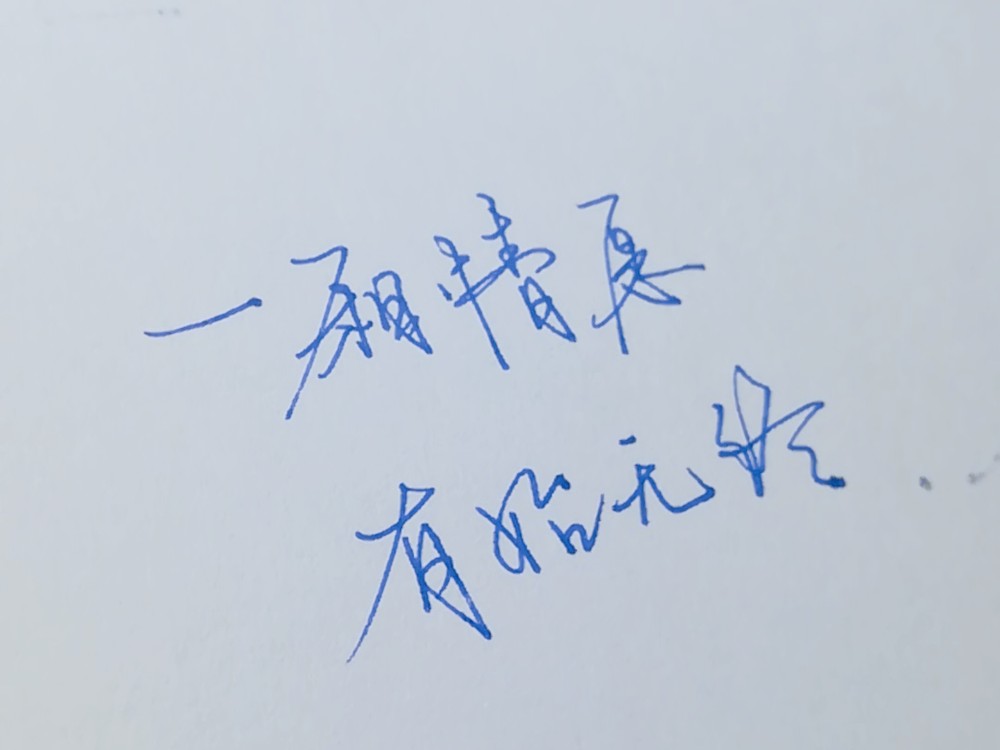 一厢情愿
有始无终